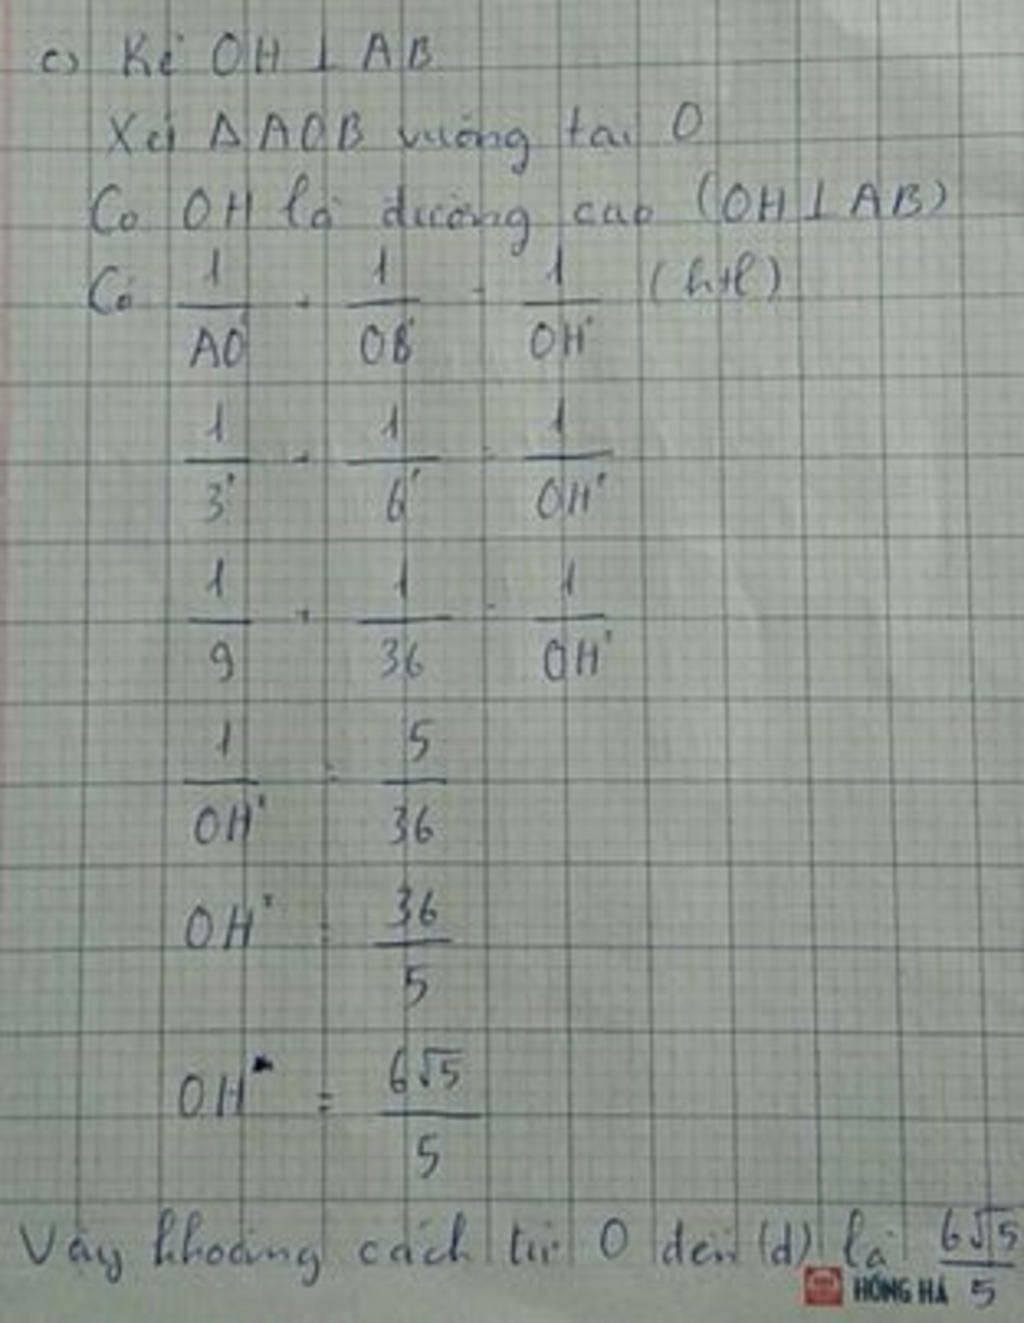 c) Kẻ OH ⊥ AB
Xét ΔAOB vuông tại O
Có OH là đường cao (OH ⊥ AB)
Có 1/AO² + 1/OB² = 1/OH² (htl)
1/3² + 1/6² = 1/OH²
1/9 + 1/36 = 1/OH²
1/OH² = 5/36
OH² = 36/5
OH = 6√5/5
Vậy khoảng cách từ O đến (d) là 6√5/5
HỒNG HÀ